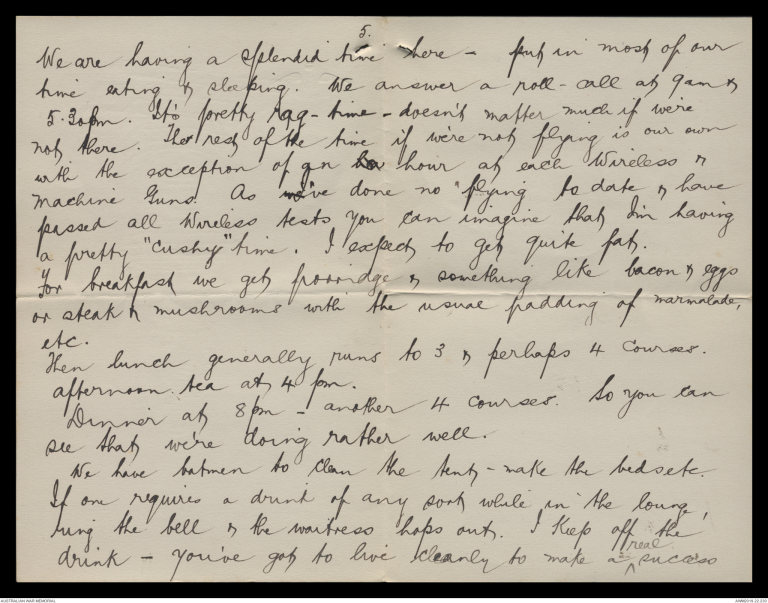 5.
We are having a splendid time here - put in most of our
time eating & sleeping. We answer a roll-call at 9am &
5.30pm. It's pretty rag-time - doesn't matter much if we're
not there. The rest of the time if we're not flying is our own
with the exception of an hour at each Wireless &
Machine Guns. As we've done no flying to date & have
passed all Wireless tests you can imagine that I'm having
a pretty "cushy" time. I expect to get quite fat.
For breakfast we get porridge & something like bacon & eggs
or steak & mushrooms with the usual padding of marmalade,
etc.
Then lunch generally runs to 3 & perhaps 4 courses.
afternoon tea at 4 pm.
Dinner at 8pm - another 4 courses. So you can
see that we're doing rather well.
We have batmen to clean the tents - make the beds etc.
If one requires a drink of any sort while in the lounge,
ring the bell & the waitress hops out. I keep off the
drink - you've got to live cleanly to make a real success
AUSTRALIAN WAR MEMORIAL